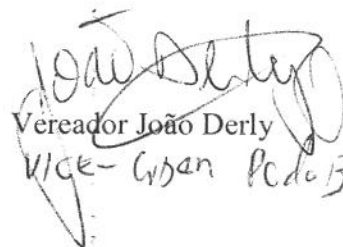 João Derly
Vereador João Derly
Vice- PCdoB